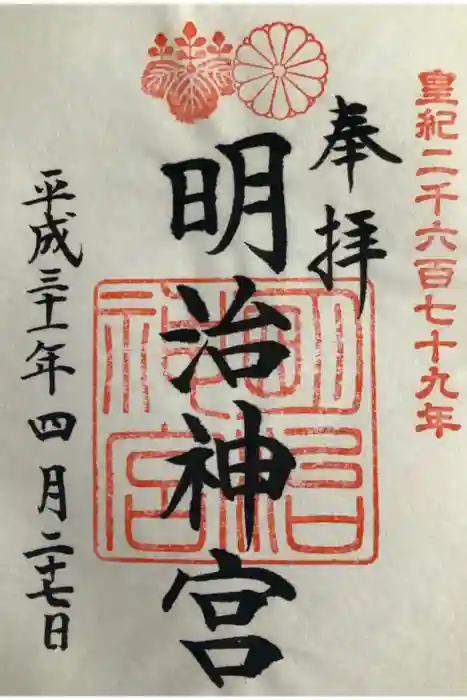 皇紀二千六百七十九年
奉拝
明治神宮
平成三十一年四月二十七日
明治神宮